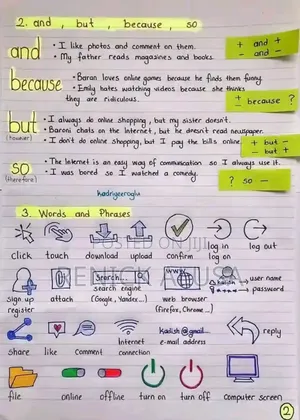 2. and , but , because , so
and
• I like photos and comment on them.
• My father reads magazines and books.
+ and +
- and -
because
• Baran loves online games because he finds them funny.
• Emily hates watching videos because she thinks
they are ridiculous.
+
- because ?
but
(however)
• I always do online shopping, but my sister doesn't.
• Baran chats on the Internet, but he doesn't read newspaper.
• I don't do online shopping, but I pay the bills online.
+ but -
- but +
so
(therefore)
• The Internet is an easy way of communication so I always use it.
• I was bored so I watched a comedy.
? so -
kadriyeeroglu
3. Words and Phrases
POSTED ON JIJI
click touch download upload confirm log in log out
log on
Search...
www
kadish
user name
password
sign up
register
attach
search engine
(Google, Yandex...)
web browser
(Firefox, Chrome...)
Kadish@gmail...
reply
share like comment
Internet
connection
e-mail address
file online offline turn on turn off computer screen
2